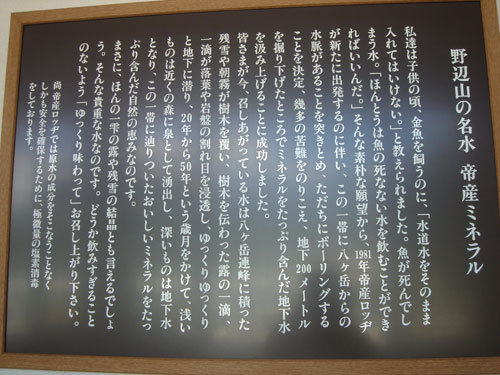 野辺山の名水 帝産ミネラル
私達は子供の頃、金魚を飼うのに、「水道水をそのまま
入れてはいけない。」と教えられました。魚が死んでし
まう水。「ほんとうは魚の死なない水を飲むことができ
ればいいんだ。」そんな素朴な願望から、1981年帝産ロッヂ
が新たに出発するのに伴い、この一帯に八ヶ岳からの
水脈があることを突きとめ、ただちにボーリングする
ことを決定、幾多の苦難をのりこえ、地下200メートル
を掘り下げたところでミネラルをたっぷり含んだ地下水
を汲み上げることに成功しました。
皆さまが今、召しあがっている水は八ヶ岳連峰に積った
残雪や朝霧が樹木を覆い、樹木を伝わった露の一滴、
一滴が落葉や岩盤の割れ目を浸透し、ゆっくりゆっくり
と地下に潜り、20年から50年という歳月をかけて、浅い
ものは近くの森に泉として湧出し、深いものは地下水
となり、この一帯に辿りついたおいしいミネラルをたっ
ぷり含んだ自然の恵みなのです。
まさに、ほんの一雫の露や残雪の結晶とも言えるでしょ
う。そんな貴重な水なのです。どうか飲みすぎること
のないよう「ゆっくり味わって」お召し上がり下さい。
尚 帝産ロッヂでは原水の成分をそこなうことなく
しかも安全を確保するために、極微量の塩素消毒
をしております。